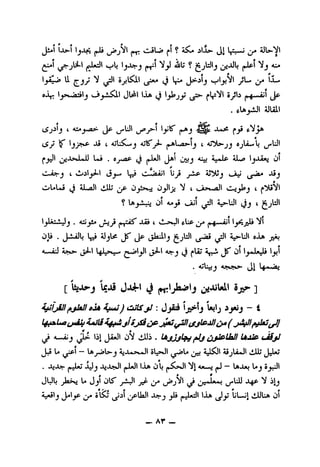 الإحالة من نسبتها إلى حدَّاد مكة ؟ أم ضاقت بهم الأرض فلم يجدوا أحداً أمثل
منه ولا أعلم بالدين والتاريخ ؟ تالله لولا أنهم وجدوا باب التعليم الخارجي أمنع
سدّاً من سائر الأبواب وأدخل منها في معنى المكابرة التي لا تروج لما ضيَّقوا
على أنفسهم دائرة الاتهام حتى تورطوا في هذا المحال المكشوف وافتضحوا بهذه
المقالة الشوهاء .
هؤلاء قوم محمد ﷺ وهم كانوا أحرص الناس على خصومته ، وأدرى
الناس بأسفاره ورحلاته ، وأحصاهم لحركاته وسكناته ، قد عجزوا كما ترى
أن يعقدوا صلة علمية بينه وبين أهل العلم في عصره . فما للملحدين اليوم
وقد مضى نيف وثلاثة عشر قرناً انفضَّت فيها سوق الحوادث ، وجفت
الأقلام ، وطويت الصحف ، لا يزالون يبحثون عن تلك الصلة في قمامات
التاريخ ، وفي الناحية التي أنف قومه أن ينبشوها ؟
ألا فليريحوا أنفسهم من عناء البحث ، فقد كفتهم قريش مئونته . وليشتغلوا
بغير هذه الناحية التي قضى التاريخ والمنطق على كل محاولة فيها بالفشل . فإن
أبوا فليعلموا أن كل شبهة تقام في وجه الحق الواضح سيحيلها الحق حجة لنفسه
يضمها إلى حججه وبيناته .
[ حيرة المعاندين واضطرابهم في الجدل قديماً وحديثاً ]
٤ – ونعود رابعاً وأخيراً فنقول : لو كانت ( نسبة هذه العلوم القرآنية
إلى تعليم البشر ) من الدعاوى التي تعبّر عن فكرة أو شبهة قائمة بنفس صاحبها
لوقف عندها الطاعنون ولم يجاوزوها . ذلك لأن العقل إذا خُلِّي ونفسه في
تعليل تلك المفارقة الكلية بين ماضي الحياة المحمدية وحاضرها – أعني ما قبل
النبوة وما بعدها – لم يسعه إلا الحكم بأن هذا العلم الجديد وليدُ تعليم جديد .
وإذ لا عهد للناس بمعلِّمين في الأرض من غير البشر كان أول ما يخطر بالبال
أن هنالك إنساناً تولى هذا التعليم فلو وجد الطاعن أدنى تُكَأَة من عوامل واقعية
– ٨٣ –